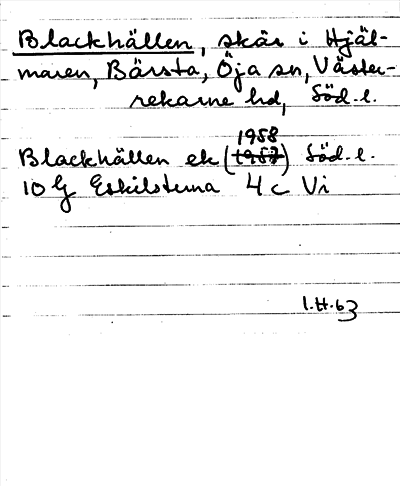 Blackhällen, skär i Hjäl-
maren, Bärsta, Öja sn, Väster-
rekarne hd, Söd. l.
1958
Blackhällen ek (1957) Söd. l.
10 G Eskilstuna 4 c Vi